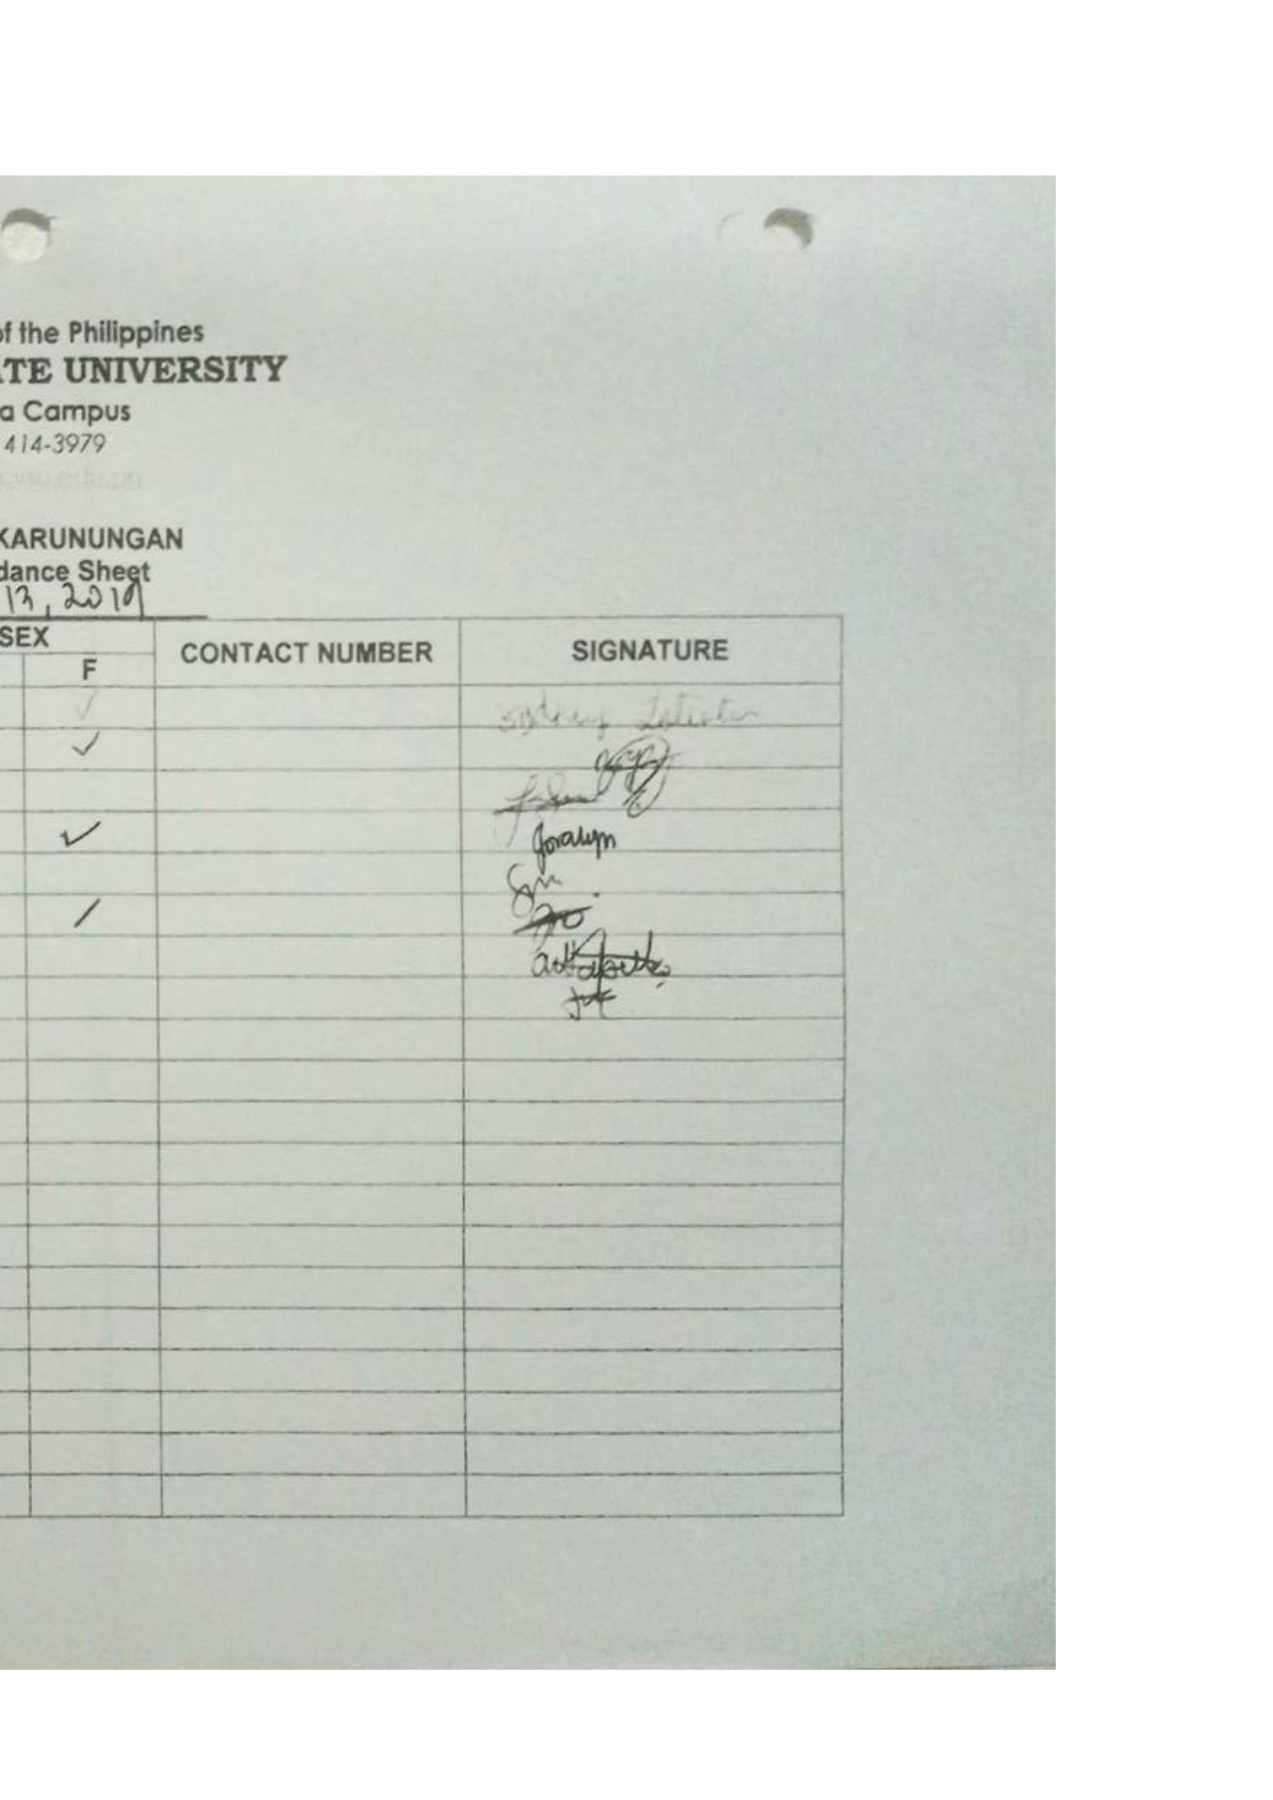 of the Philippines
ATE UNIVERSITY
a Campus
414-3979
KARUNUNGAN
dance Sheet
13, 2019
SEX CONTACT NUMBER SIGNATURE
F
✓ Sydney
✓
✓ Joralyn
/